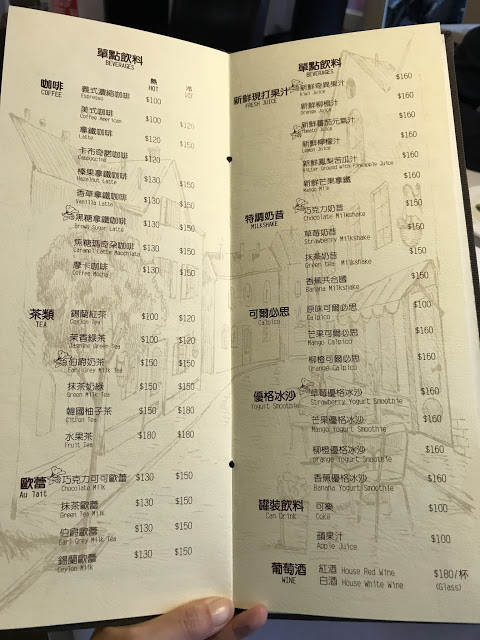 單點飲料
BEVERAGES
熱 冷
HOT ICE
咖啡
COFFEE
義式濃縮咖啡 $100
Espresso
美式咖啡 $100 $120
Coffee American
拿鐵咖啡 $120 $150
Latte
卡布奇諾咖啡 $120 $150
Cappuccino
榛果拿鐵咖啡 $130 $150
Hazelnut Latte
香草拿鐵咖啡 $130 $150
Vanilla Latte
黑糖拿鐵咖啡 $130 $150
Brown Sugar Latte
焦糖瑪奇朵咖啡 $130 $150
Caramel Latte Macchiato
摩卡咖啡 $130 $150
Coffee Mocha
茶類
TEA
錫蘭紅茶 $100 $120
Ceylon Tea
茉香綠茶 $100 $120
Jasmine Green Tea
伯爵奶茶 $150 $150
Earl Grey Milk Tea
抹茶奶綠 $150 $150
Green Milk Tea
韓國柚子茶 $150 $180
Citron Tea
水果茶 $180 $180
Fruit Tea
歐蕾
Au Tait
巧克力可可歐蕾 $130 $150
Chocolate Milk
抹茶歐蕾 $130 $150
Green Tea Milk
伯爵歐蕾 $130 $150
Earl Grey Milk Tea
錫蘭歐蕾 $130 $150
Ceylon Milk
單點飲料
BEVERAGES
新鮮現打果汁
FRESH JUICE
新鮮奇異果汁 $160
Kiwi Juice
新鮮柳橙汁 $160
Orange Juice
新鮮蕃茄元氣汁 $160
Tomato Juice
新鮮檸檬汁 $160
Lemon Juice
新鮮鳳梨苦瓜汁 $160
Bitter Ground with Pineapple Juice
新鮮芒果拿鐵 $160
Mango Milk
特調奶昔
MILKSHAKE
巧克力奶昔 $150
Chocolate Milkshake
草莓奶昔 $150
Strawberry Milkshake
抹茶奶昔 $150
Green tea Milkshake
香蕉共合國 $150
Banana Milkshake
可爾必思
Calpico
原味可爾必思 $100
Calpico
芒果可爾必思 $160
Mango Calpico
柳橙可爾必思 $160
Orange Calpico
優格冰沙
Yogurt Smoothie
草莓優格冰沙 $160
Strawberry Yogurt Smoothie
芒果優格冰沙 $160
Mango Yogurt Smoothie
柳橙優格冰沙 $160
Orange Yogurt Smoothie
香蕉優格冰沙 $160
Banana Yogurt Smoothie
罐裝飲料
Can Drink
可樂 $100
Coke
蘋果汁 $100
Apple Juice
葡萄酒
WINE
紅酒 House Red Wine $180/杯
白酒 House White Wine (Glass)